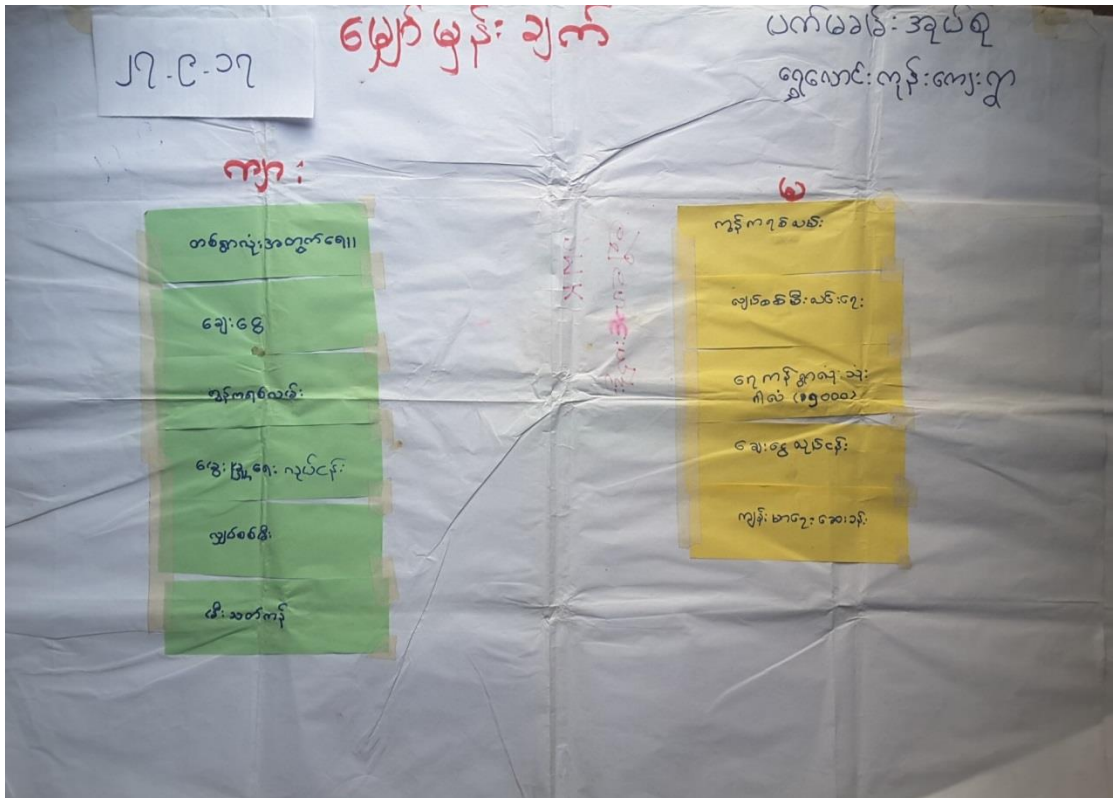 ၂၇.၉.၁၇
မျှော်မှန်းချက်
ပက်မခန်းအုပ်စု
ရွှေလောင်းကုန်းကျေးရွာ
ကျား
တစ်ရွာလုံးအတွက်ရေ။
ချေးငွေ
ကွန်ကရစ်လမ်း
မွေးမြူရေးလုပ်ငန်း
လျှပ်စစ်မီး
မီးသတ်ကန်
မ
ကွန်ကရစ်လမ်း
လျှပ်စစ်မီးလင်းရေး
ရေကန်ရွာလုံးသုံး
ဂါလံ
ချေးငွေလုပ်ငန်း
ကျန်းမာရေးဆေးခန်း